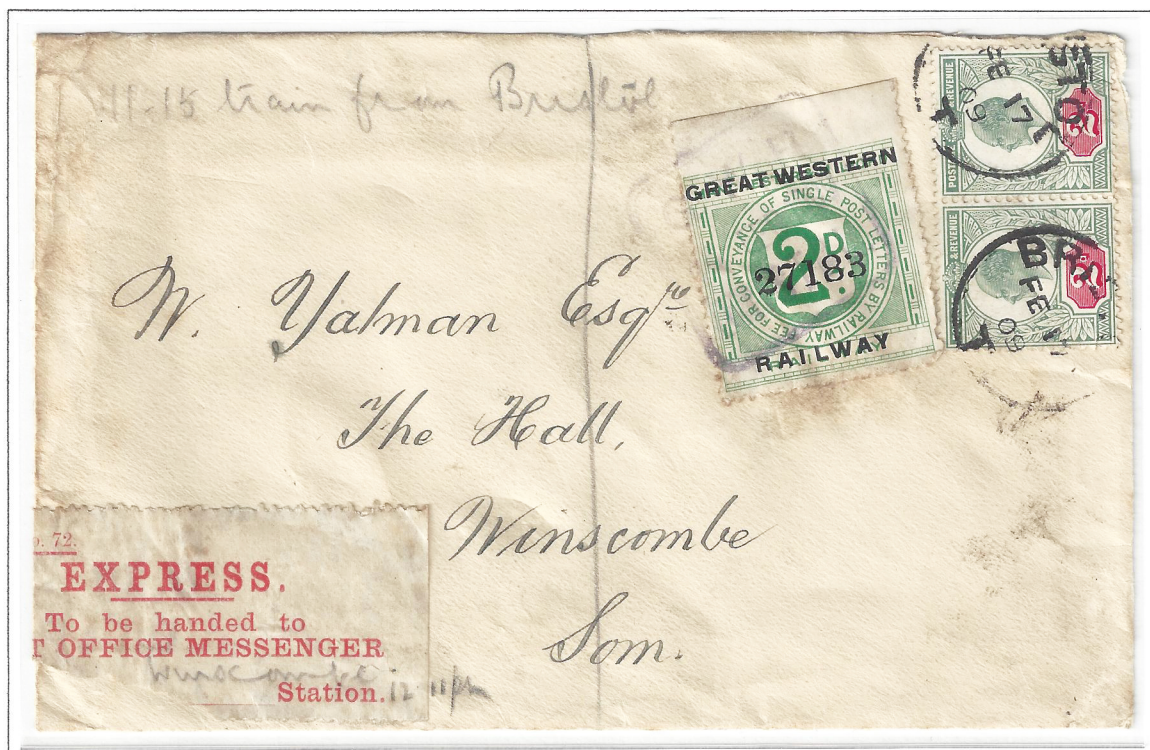 11-15 train from Bristol
GREAT WESTERN
FEE FOR CONVEYANCE OF SINGLE POST LETTERS BY RAILWAY
2D.
27183
RAILWAY
POSTAGE & REVENUE
ISTOL
FE 17
09
T
& REVENUE
BRI
FE 17
09
T
W. Yalman Esqre
The Hall,
Winscombe
Som.
o. 72.
EXPRESS.
To be handed to
T OFFICE MESSENGER
Winscombe
Station. 12.11pm